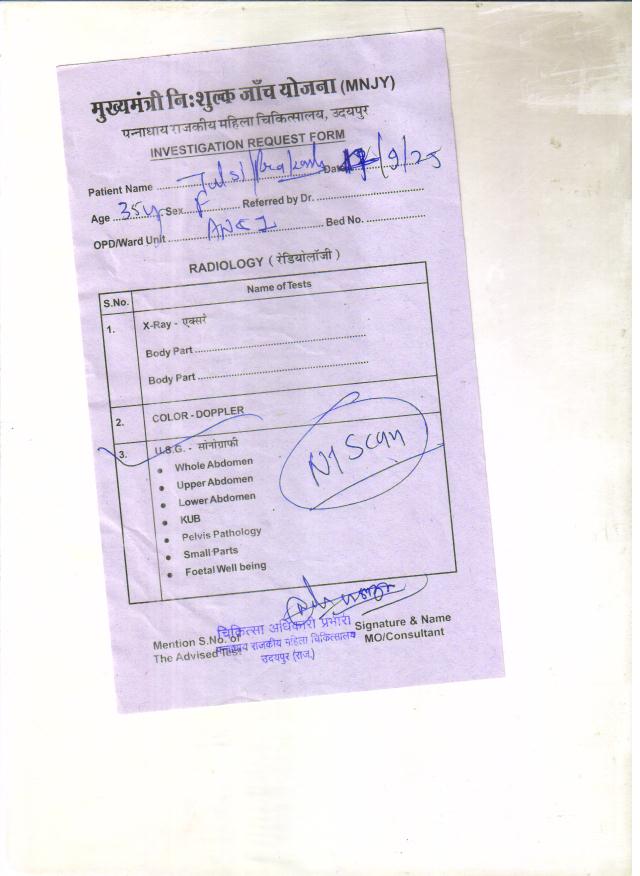 मुख्यमंत्री निःशुल्क जाँच योजना (MNJY)
पन्नाधाय राजकीय महिला चिकित्सालय, उदयपुर
INVESTIGATION REQUEST FORM
Patient Name ........ Tulsi / Prakash Date /9/25
Age 35y Sex F Referred by Dr. ........
OPD/Ward Unit ........ Bed No. ........
RADIOLOGY ( रेडियोलॉजी )
S.No. Name of Tests
1. X-Ray - एक्सरे
Body Part ........
Body Part ........
2. COLOR - DOPPLER
3. U.S.G. - सोनोग्राफी
• Whole Abdomen
• Upper Abdomen
• Lower Abdomen
• KUB
• Pelvis Pathology
• Small Parts
• Foetal Well being
NT Scan
चिकित्सा अधिकारी प्रभारी
पन्नाधाय राजकीय महिला चिकित्सालय
उदयपुर (राज.)
Mention S.No. of
The Advised Test
Signature & Name
MO/Consultant